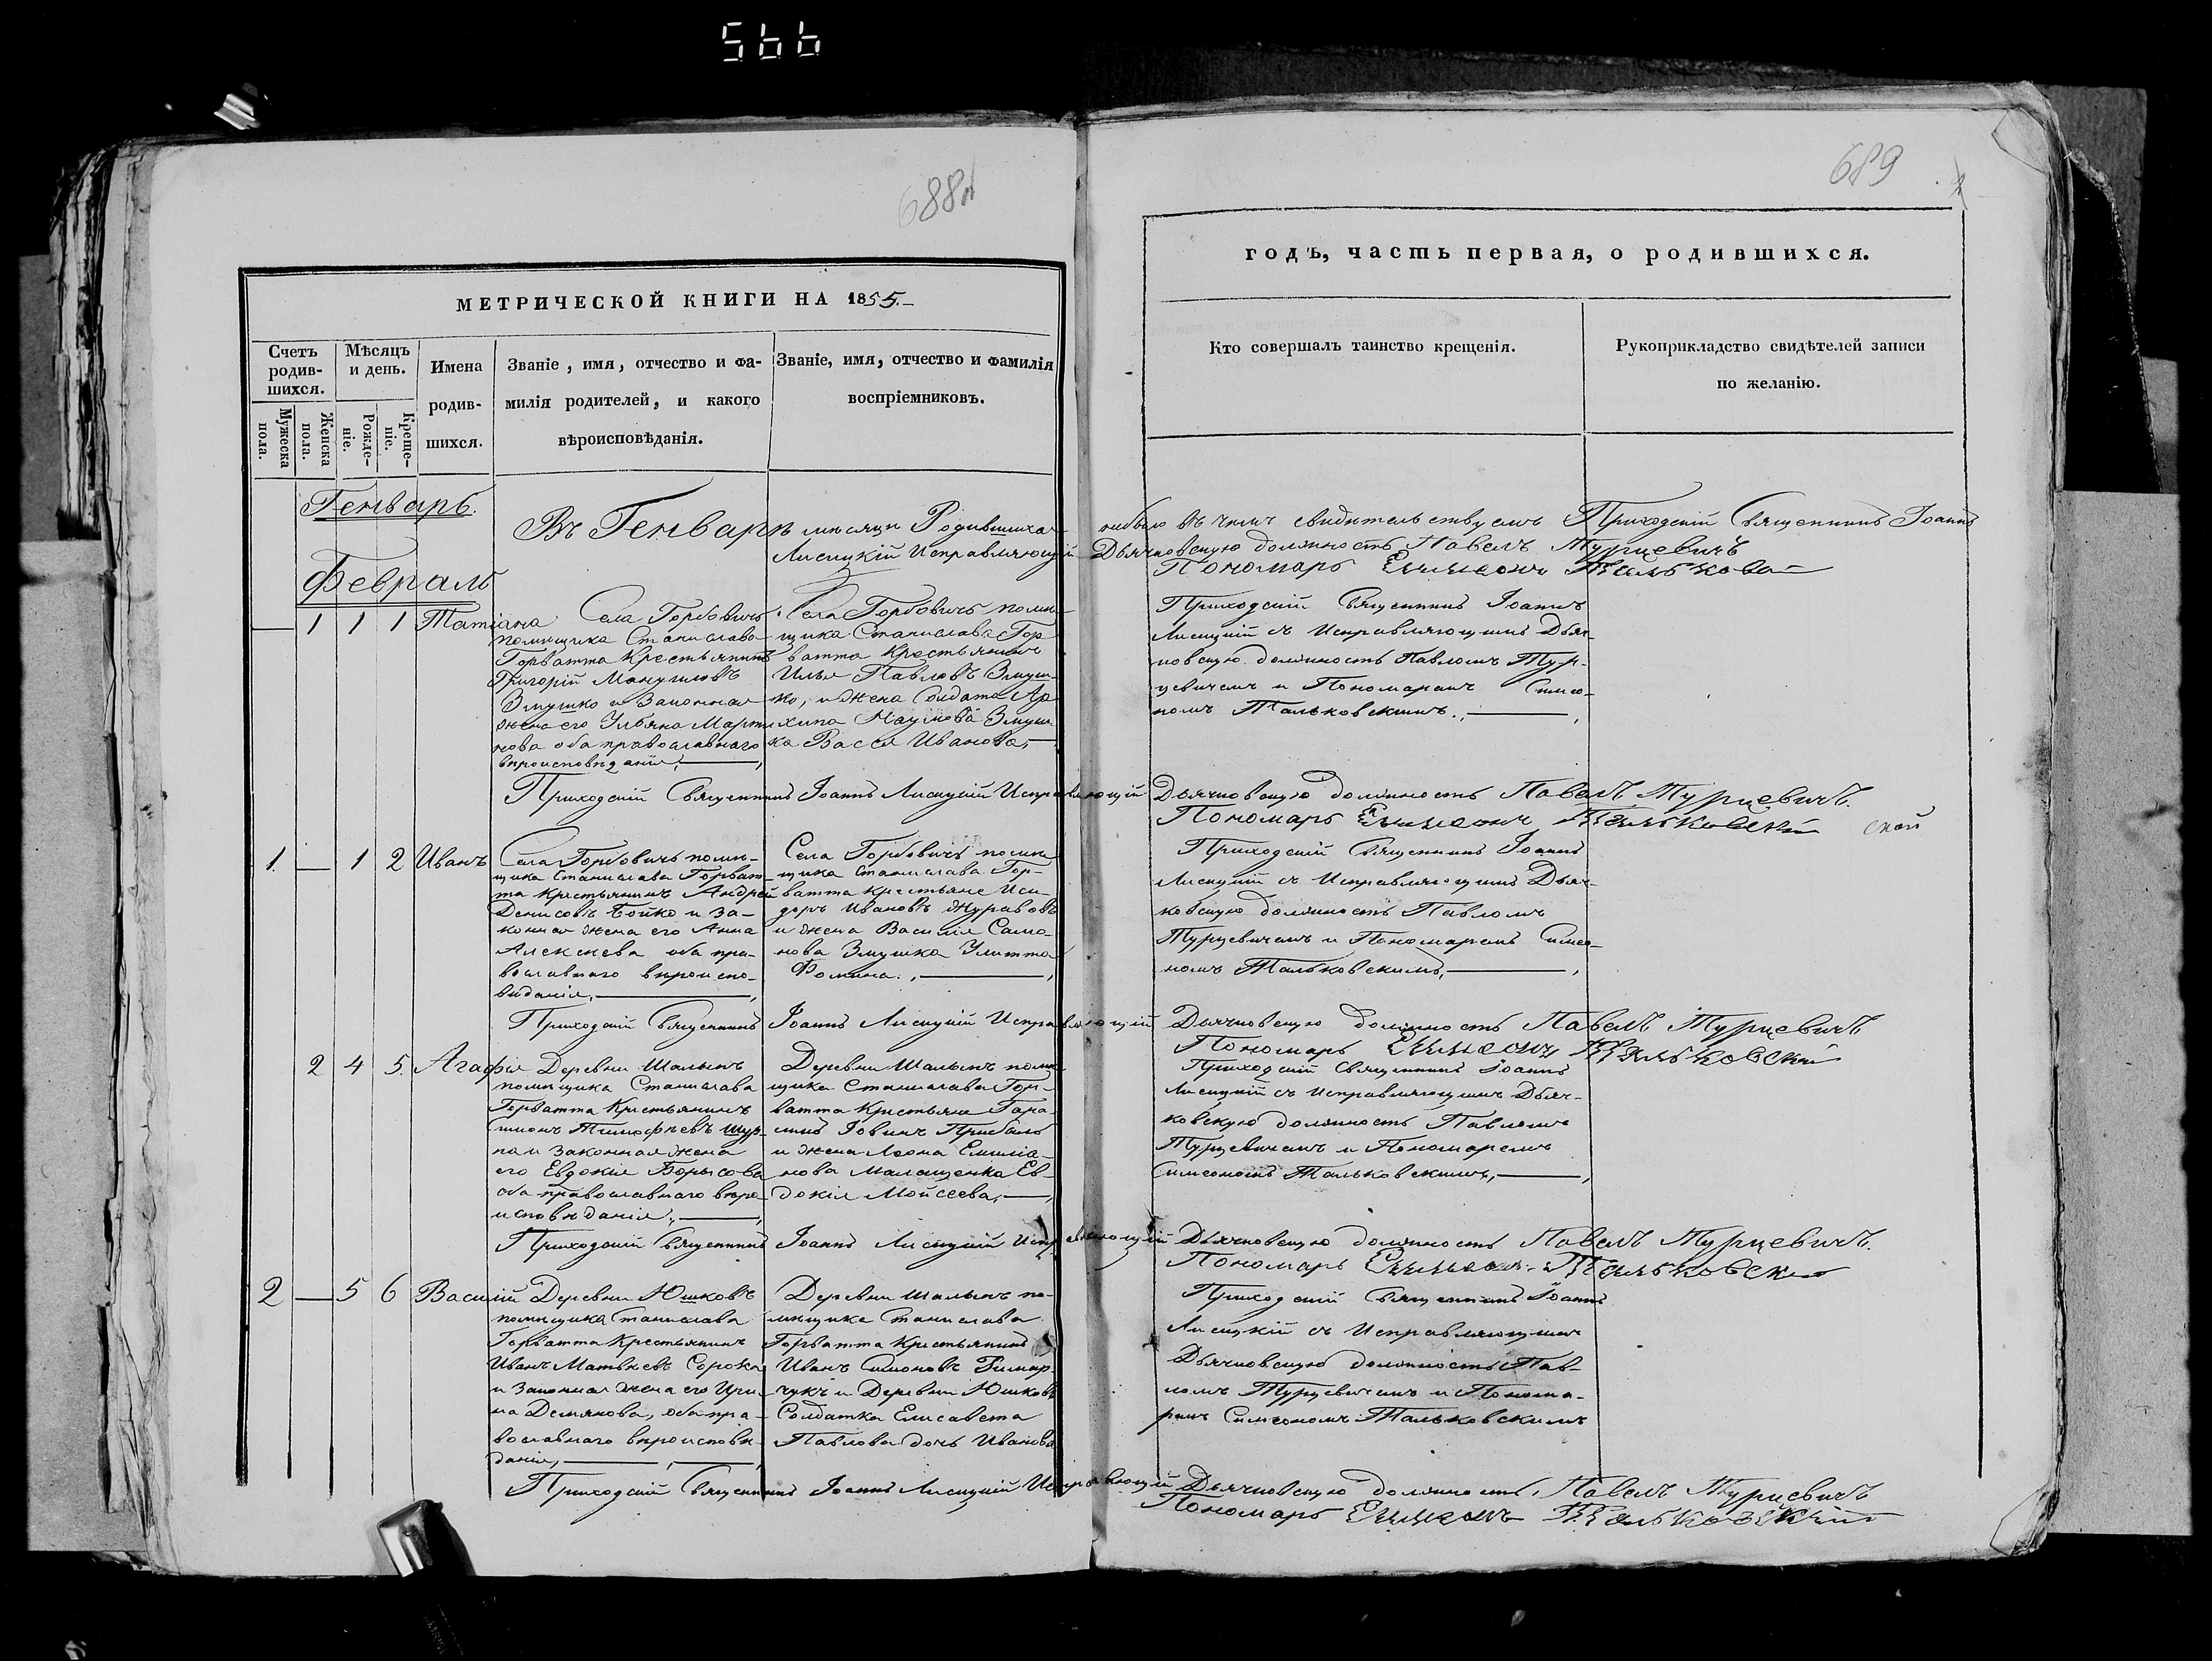 566
688л
689
МЕТРИЧЕСКОЙ КНИГИ НА 1855.
годъ, часть первая, о родившихся.
Счетъ родившихся.
Мужеска пола.
Женска пола.
Мѣсяцъ и день.
Рожденіе.
Крещеніе.
Имена
родив-
шихся.
Званіе, имя, отчество и фа-
милія родителей, и какого
вѣроисповѣданія.
Званіе, имя, отчество и фамилія
воспріемниковъ.
Кто совершалъ таинство крещенія.
Рукоприкладство свидѣтелей записи
по желанію.
Генварь.
Въ Генварѣ мѣсяцѣ Родившихся небыло въ чемъ свидѣтельствуемъ Приходскій Священникъ Іоаннъ
Лисицкій Исправляющій Дьячковскую должность Павелъ Турцевичъ
Пономарь Симеонъ
Февраль
1 1 1 Татіана
Села Горбовичъ
помѣщика Станислава
Горватта Крестьянинъ
Григорій
Змушко и Законная
жена его Ульяна Марти-
нова оба православнаго
вѣроисповѣданія,
Села Горбовичъ помѣ-
щика Станислава Гор-
ватта Крестьянинъ
Илья Павловъ Змуш-
ко, и жена Солдата Ар-
хипа Наумова Змуш-
ка Васса Иванова,
Приходскій Священникъ Іоаннъ
Лисицкій съ Исправляющимъ Дьяч-
ковскую должность Павломъ Тур-
цевичемъ и Пономаремъ Симео-
номъ Тальковскимъ.,
Приходскій Священникъ Іоаннъ Лисицкій Исправляющій Дьячковскую должность Павелъ Турцевичъ.
Пономарь Симеонъ Тальковскій
ской
1. 1 2 Иванъ
Села Горбовичъ помѣ-
щика Станислава Горват-
та Крестьянинъ Андрей
Денисовъ Бойко и за-
конная жена его Анна
Алексѣева оба пра-
вославнаго вѣроиспо-
вѣданія,
Села Горбовичъ помѣ-
щика Станислава Гор-
ватта крестьяне Иси-
доръ Ивановъ Журавовъ
и жена Василія Само-
нова Змушка Улитта
Фомина.,
Приходскій Священникъ Іоаннъ
Лисицкій съ Исправляющимъ Дьяч-
ковскую должность Павломъ
Турцевичемъ и Пономаремъ Симео-
номъ Тальковскимъ,
Приходскій Священникъ Іоаннъ Лисицкій Исправляющій Дьячковскую должность Павелъ Турцевичъ
Пономарь Симеонъ Тальковскій
2 4 5. Агафія
Деревни Шалынъ
помѣщика Станислава
Горватта Крестьянинъ
Тимофѣевъ
и Законная жена
его Евдокія Борысова
оба православнаго вѣро-
исповѣданія,
Деревни Шалынъ помѣ-
щика Станислава Гор-
ватта Крестьяне Гара-
симъ Іовинъ
и жена Леона Емиліа-
нова Малащенка Ев-
докія Мойсеева,
Приходскій Священникъ Іоаннъ
Лисицкій съ Исправляющимъ Дьяч-
ковскую должность Павломъ
Турцевичемъ и Пономаремъ
Симеономъ Тальковскимъ,
Приходскій Священникъ Іоаннъ Лисицкій Исправляющій Дьячковскую должность Павелъ Турцевичъ.
Пономарь Симеонъ Тальковскій
2 5 6 Василій
Деревни Юшковъ
помѣщика Станислава
Горватта Крестьянинъ
Иванъ Матвѣевъ Сорока
и Законная жена его Ири-
на Демянова, оба пра-
вославнаго вѣроисповѣ-
данія,
Деревни Шалынъ по-
мѣщика Станислава
Горватта Крестьянинъ
Иванъ Симоновъ Римар-
чукъ и Деревни Юшковъ
Солдатка Елисавета
Павлова дочь Иванова
Приходскій Священникъ Іоаннъ
Лисицкій съ Исправляющимъ
Дьячковскую должность Пав-
ломъ Турцевичемъ и Понома-
ремъ Симеономъ Тальковскимъ
Приходскій Священникъ Іоаннъ Лисицкій Исправляющій Дьячковскую должность, Павелъ Турцевичъ
Пономарь Симеонъ Тальковскій